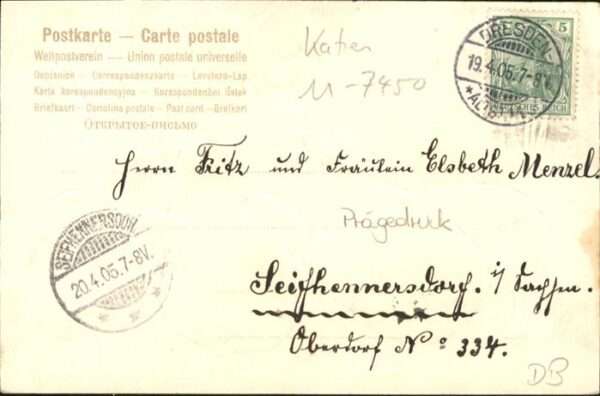 Postkarte — Carte postale
Weltpostverein — Union postale universelle
Dopisnice - Correspondenzkarte - Levelezo-Lap
Karta korespondencyjna - Korespondenční lístek
Briefkaart - Cartolina postale - Post card - Brefkort
Открытое-письмо
Katien
U-7450
5
DRESDEN-
19.4.05.7-8V.
*ALTST.
DEUTSCHES REICH
Herrn Fritz und Fräulein Elsbeth Menzel.
Prägedruck
SEIFHENNERSDORF
20.4.05.7-8V.
Seifhennersdorf. i/ Sachsen.
Oberdorf No 334.
DB